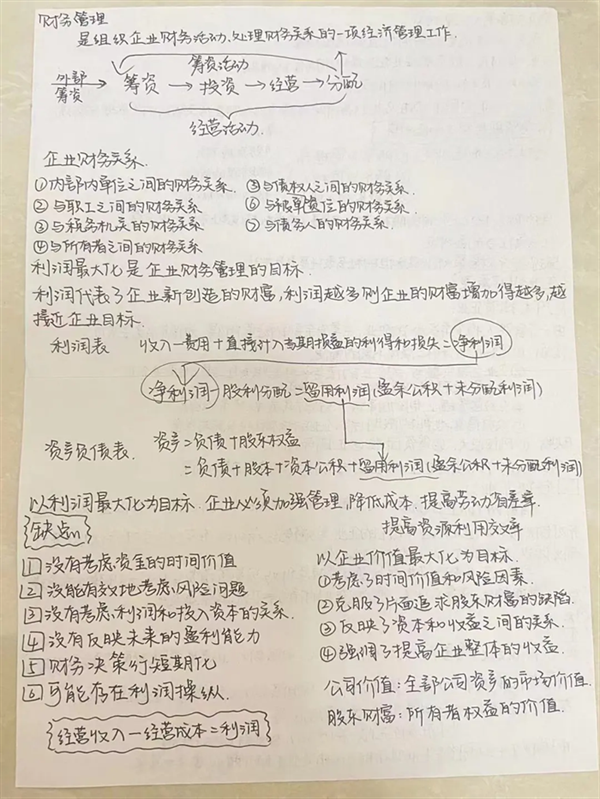 财务管理
是组织企业财务活动,处理财务关系的一项经济管理工作.
筹资活动
外部筹资 → 筹资 → 投资 → 经营 → 分配
经营活动.
企业财务关系.
①内部内单位之间的财务关系. ⑤与债权人之间的财务关系.
②与职工之间的财务关系. ⑥与被单位的财务关系.
③与税务机关的财务关系 ⑦与债务人的财务关系.
④与所有者之间的财务关系
利润最大化是企业财务管理的目标.
利润代表了企业新创造的财富,利润越多则企业的财富增加得越多,越
接近企业目标.
利润表 收入-费用+直接计入当期损益的利得和损失=净利润
净利润-股利分配=留用利润(盈余公积+未分配利润)
资产负债表. 资产=负债+股东权益
=负债+股本+资本公积+留用利润(盈余公积+未分配利润)
以利润最大化为目标.企业必须加强管理,降低成本.提高劳动率.
提高资源利用效率
缺点
1 没有考虑资金的时间价值
2 没能有效地考虑风险问题
3 没有考虑利润和投入资本的关系.
4 没有反映未来的盈利能力
5 财务决策行短期化
6 可能存在利润操纵.
经营收入-经营成本=利润
以企业价值最大化为目标.
①考虑了时间价值和风险因素.
②克服了片面追求股东财富的缺陷.
③反映了资本和收益之间的关系.
④强调了提高企业整体的收益.
公司价值:全部公司资产的市场价值.
股东财富:所有者权益的价值.